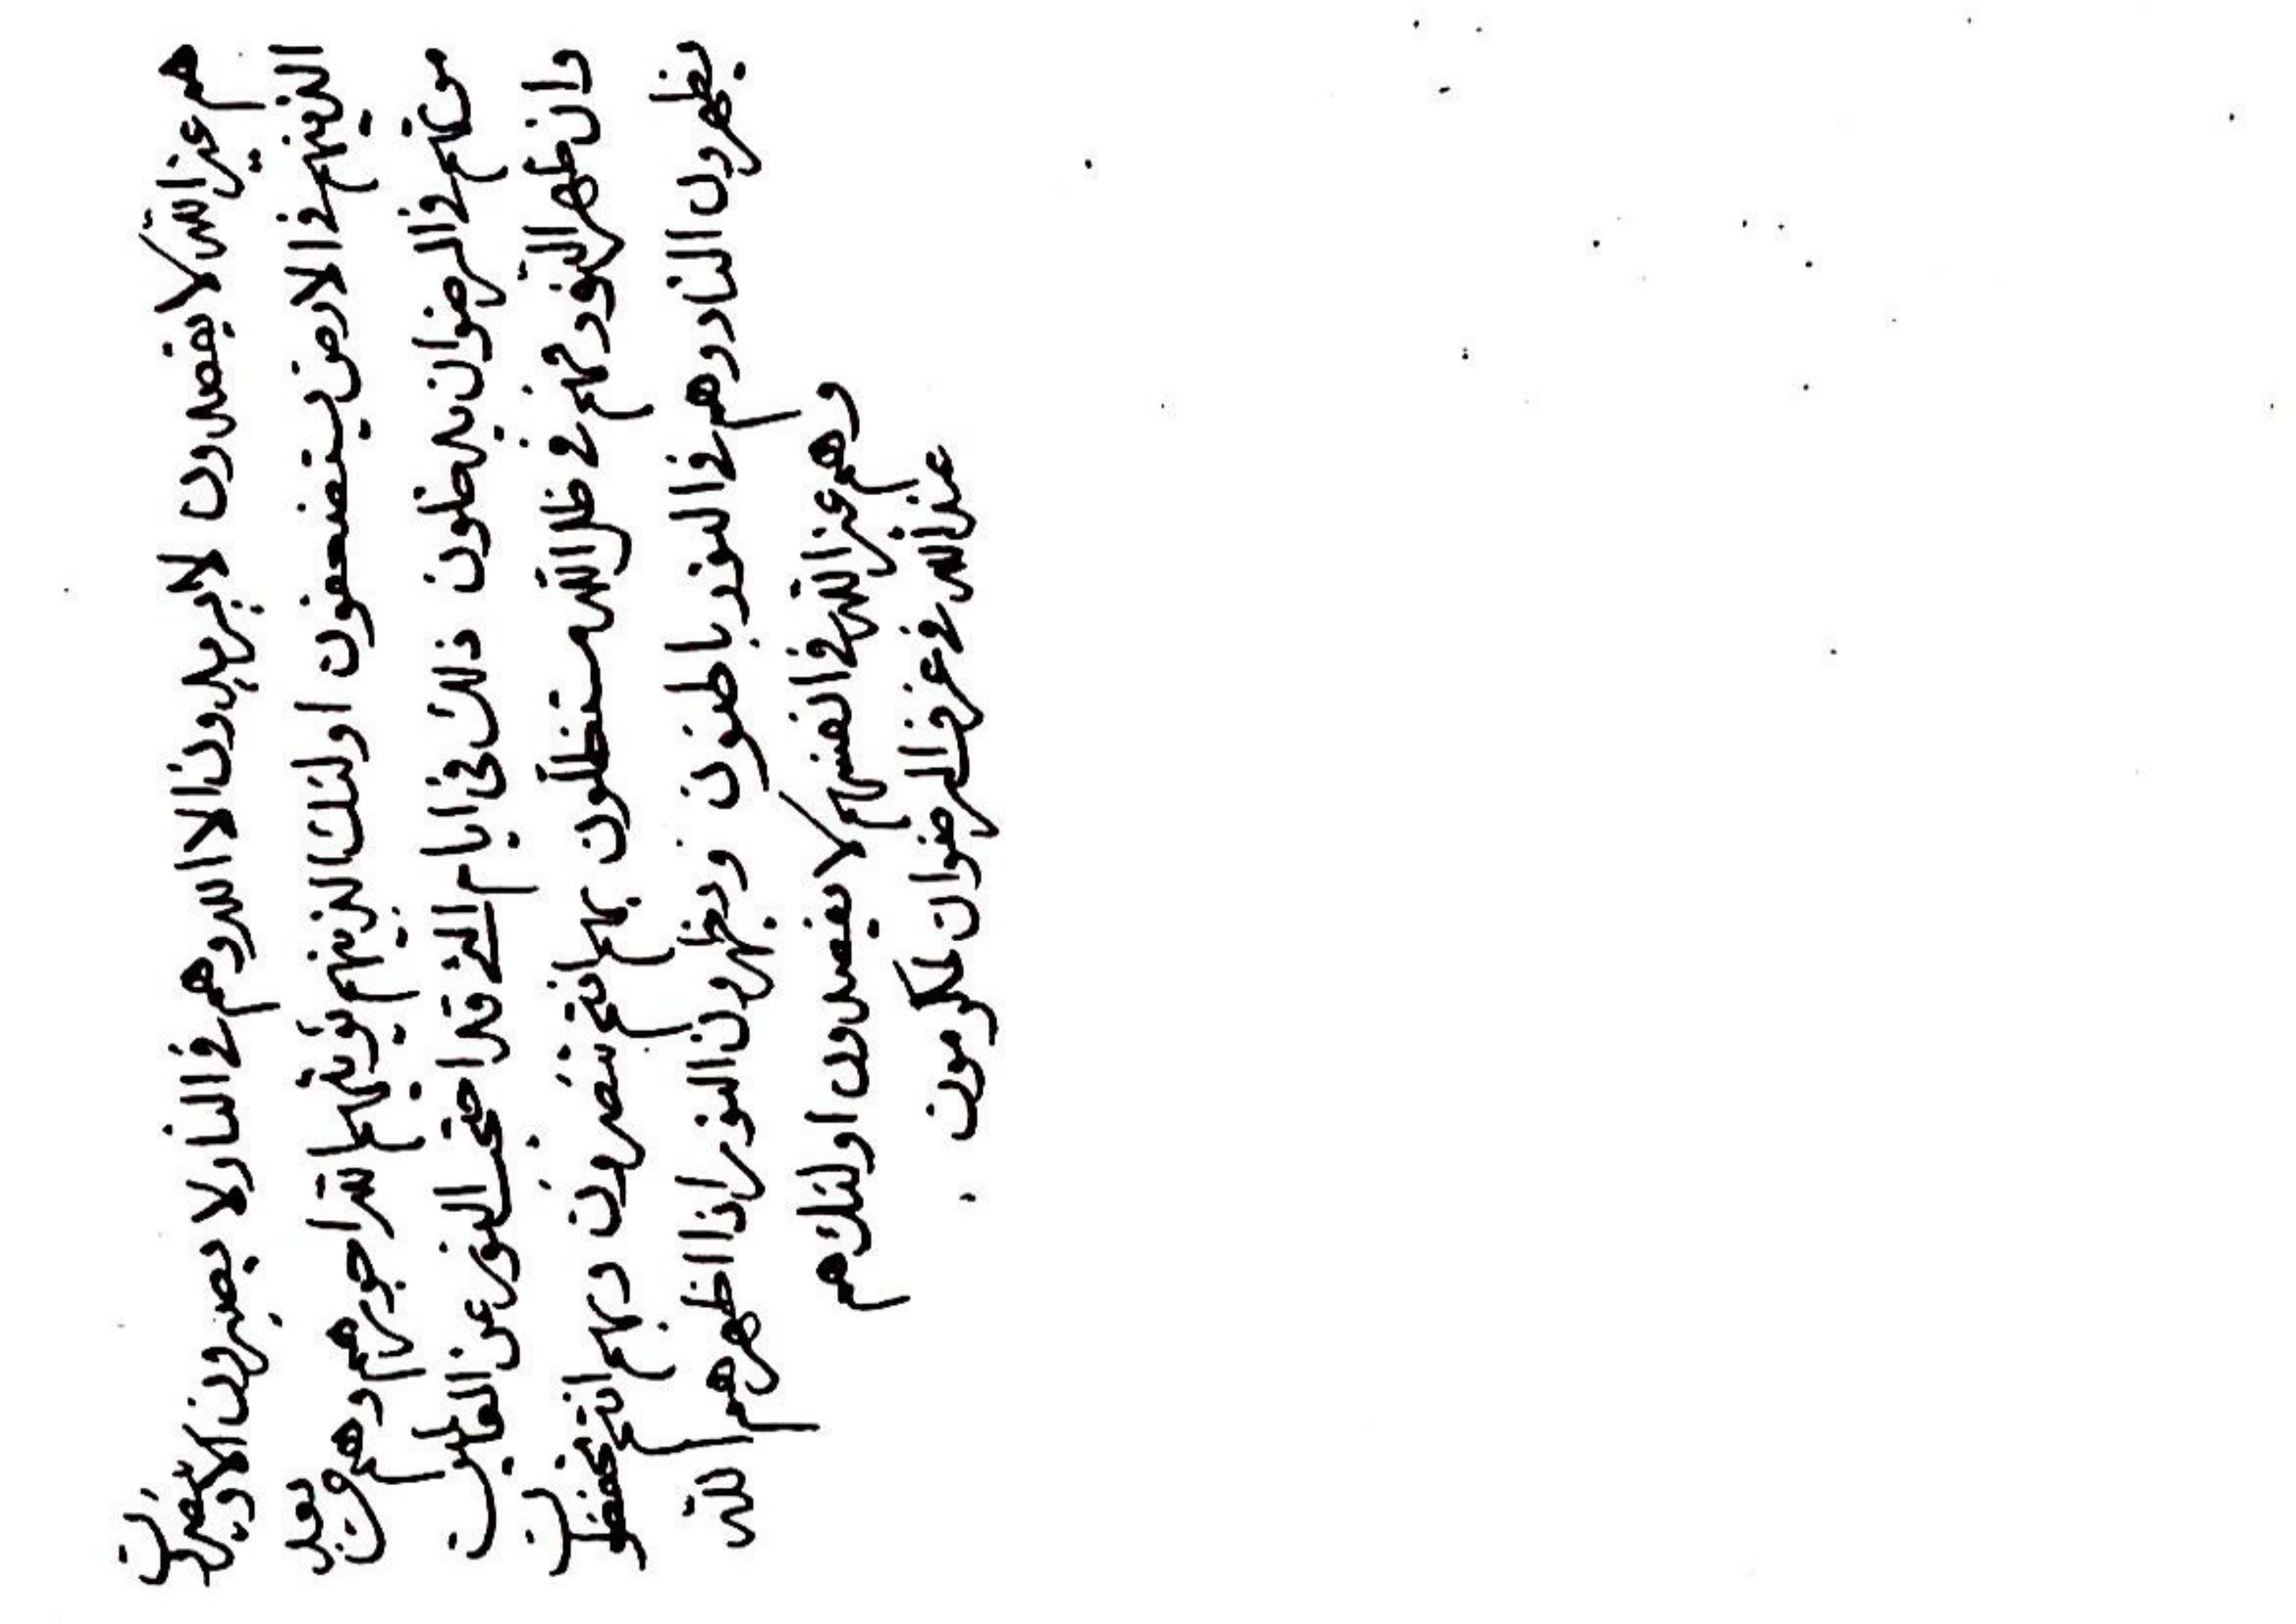 هم غير الله لا يقصدون لا يريدون الا الله وهم في النار ولا يصبرون الا
الذينهم في الارض يستضعفون اولئك الذينهم يؤتيهم الله اجورهم وهم فوق
منهم في الرضوان ذلك في ايام التي قد النور عن
وان ظهر النور وهم في ظل الله يستظلون بهم انتم تنصرون وبهم انتم تحفظون
يظهرون النار وهم في النور باطنون ويظهرون النور اذا اظهرهم الله
وهم غير الله في انفسهم لا يقصدون اولئك هم
عند الله في غرف الرضوان مكرمون .